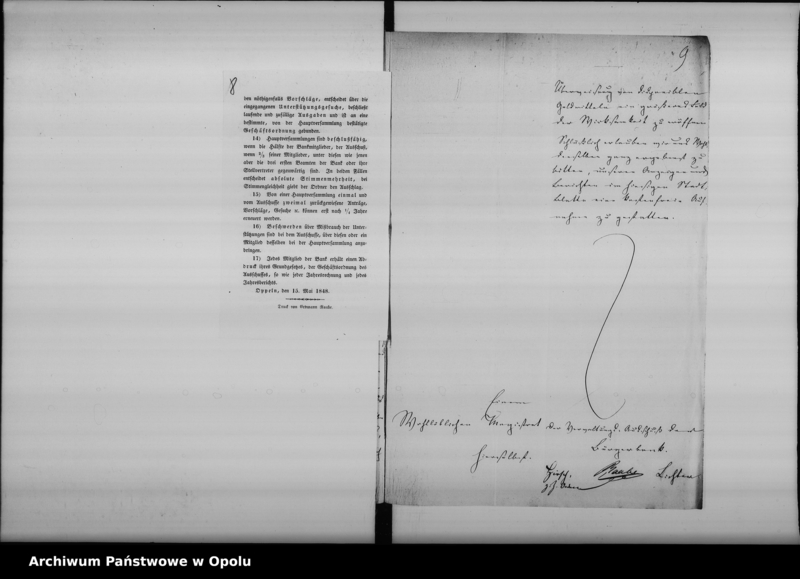 8
den nöthigenfalls Vorschläge, entscheidet über die
eingegangenen Unterstützungsgesuche, beschließt
laufende und zufällige Ausgaben und ist an eine
bestimmte, von der Hauptversammlung bestätigte
Geschäftsordnung gebunden.
14) Hauptversammlungen sind beschlußfähig,
wenn die Hälfte der Bankmitglieder, der Ausschuß,
wenn seiner Mitglieder, unter diesen wie jenen
aber die drei ersten Beamten der Bank oder ihre
Stellvertreter gegenwärtig sind. In beiden Fällen
entscheidet absolute Stimmenmehrheit, bei
Stimmengleichheit giebt der Ordner den Ausschlag.
15) Von einer Hauptversammlung einmal und
vom Ausschusse zweimal zurückgewiesene Anträge,
Vorschläge, Gesuche ꝛc. können erst nach Jahre
erneuert werden.
16) Beschwerden über Mißbrauch der Unter-
stützungen sind bei dem Ausschusse, über diesen oder ein
Mitglied desselben bei der Hauptversammlung anzu-
bringen.
17) Jedes Mitglied der Bank erhält einen Ab-
druck ihres Grundgesetzes, der Geschäftsordnung des
Ausschusses, so wie jeder Jahresrechnung und jedes
Jahresberichts.
Oppeln, den 15. Mai 1849.
Druck von Erdmann Raabe.
9
der Wirksamkeit zu
Schließlich erlauben wir uns
dieselben ganz ergebenst zu
bitten, unseren Anzeigen und
Berichten im hiesigen Stadt-
blatte eine kostenfreie Auf-
nahme zu gestatten.
Einem
Wohllöblichen Magistrat
hierselbst.
der Ausschuß der
Bürgerbank.
Raabe
Archiwum Państwowe w Opolu